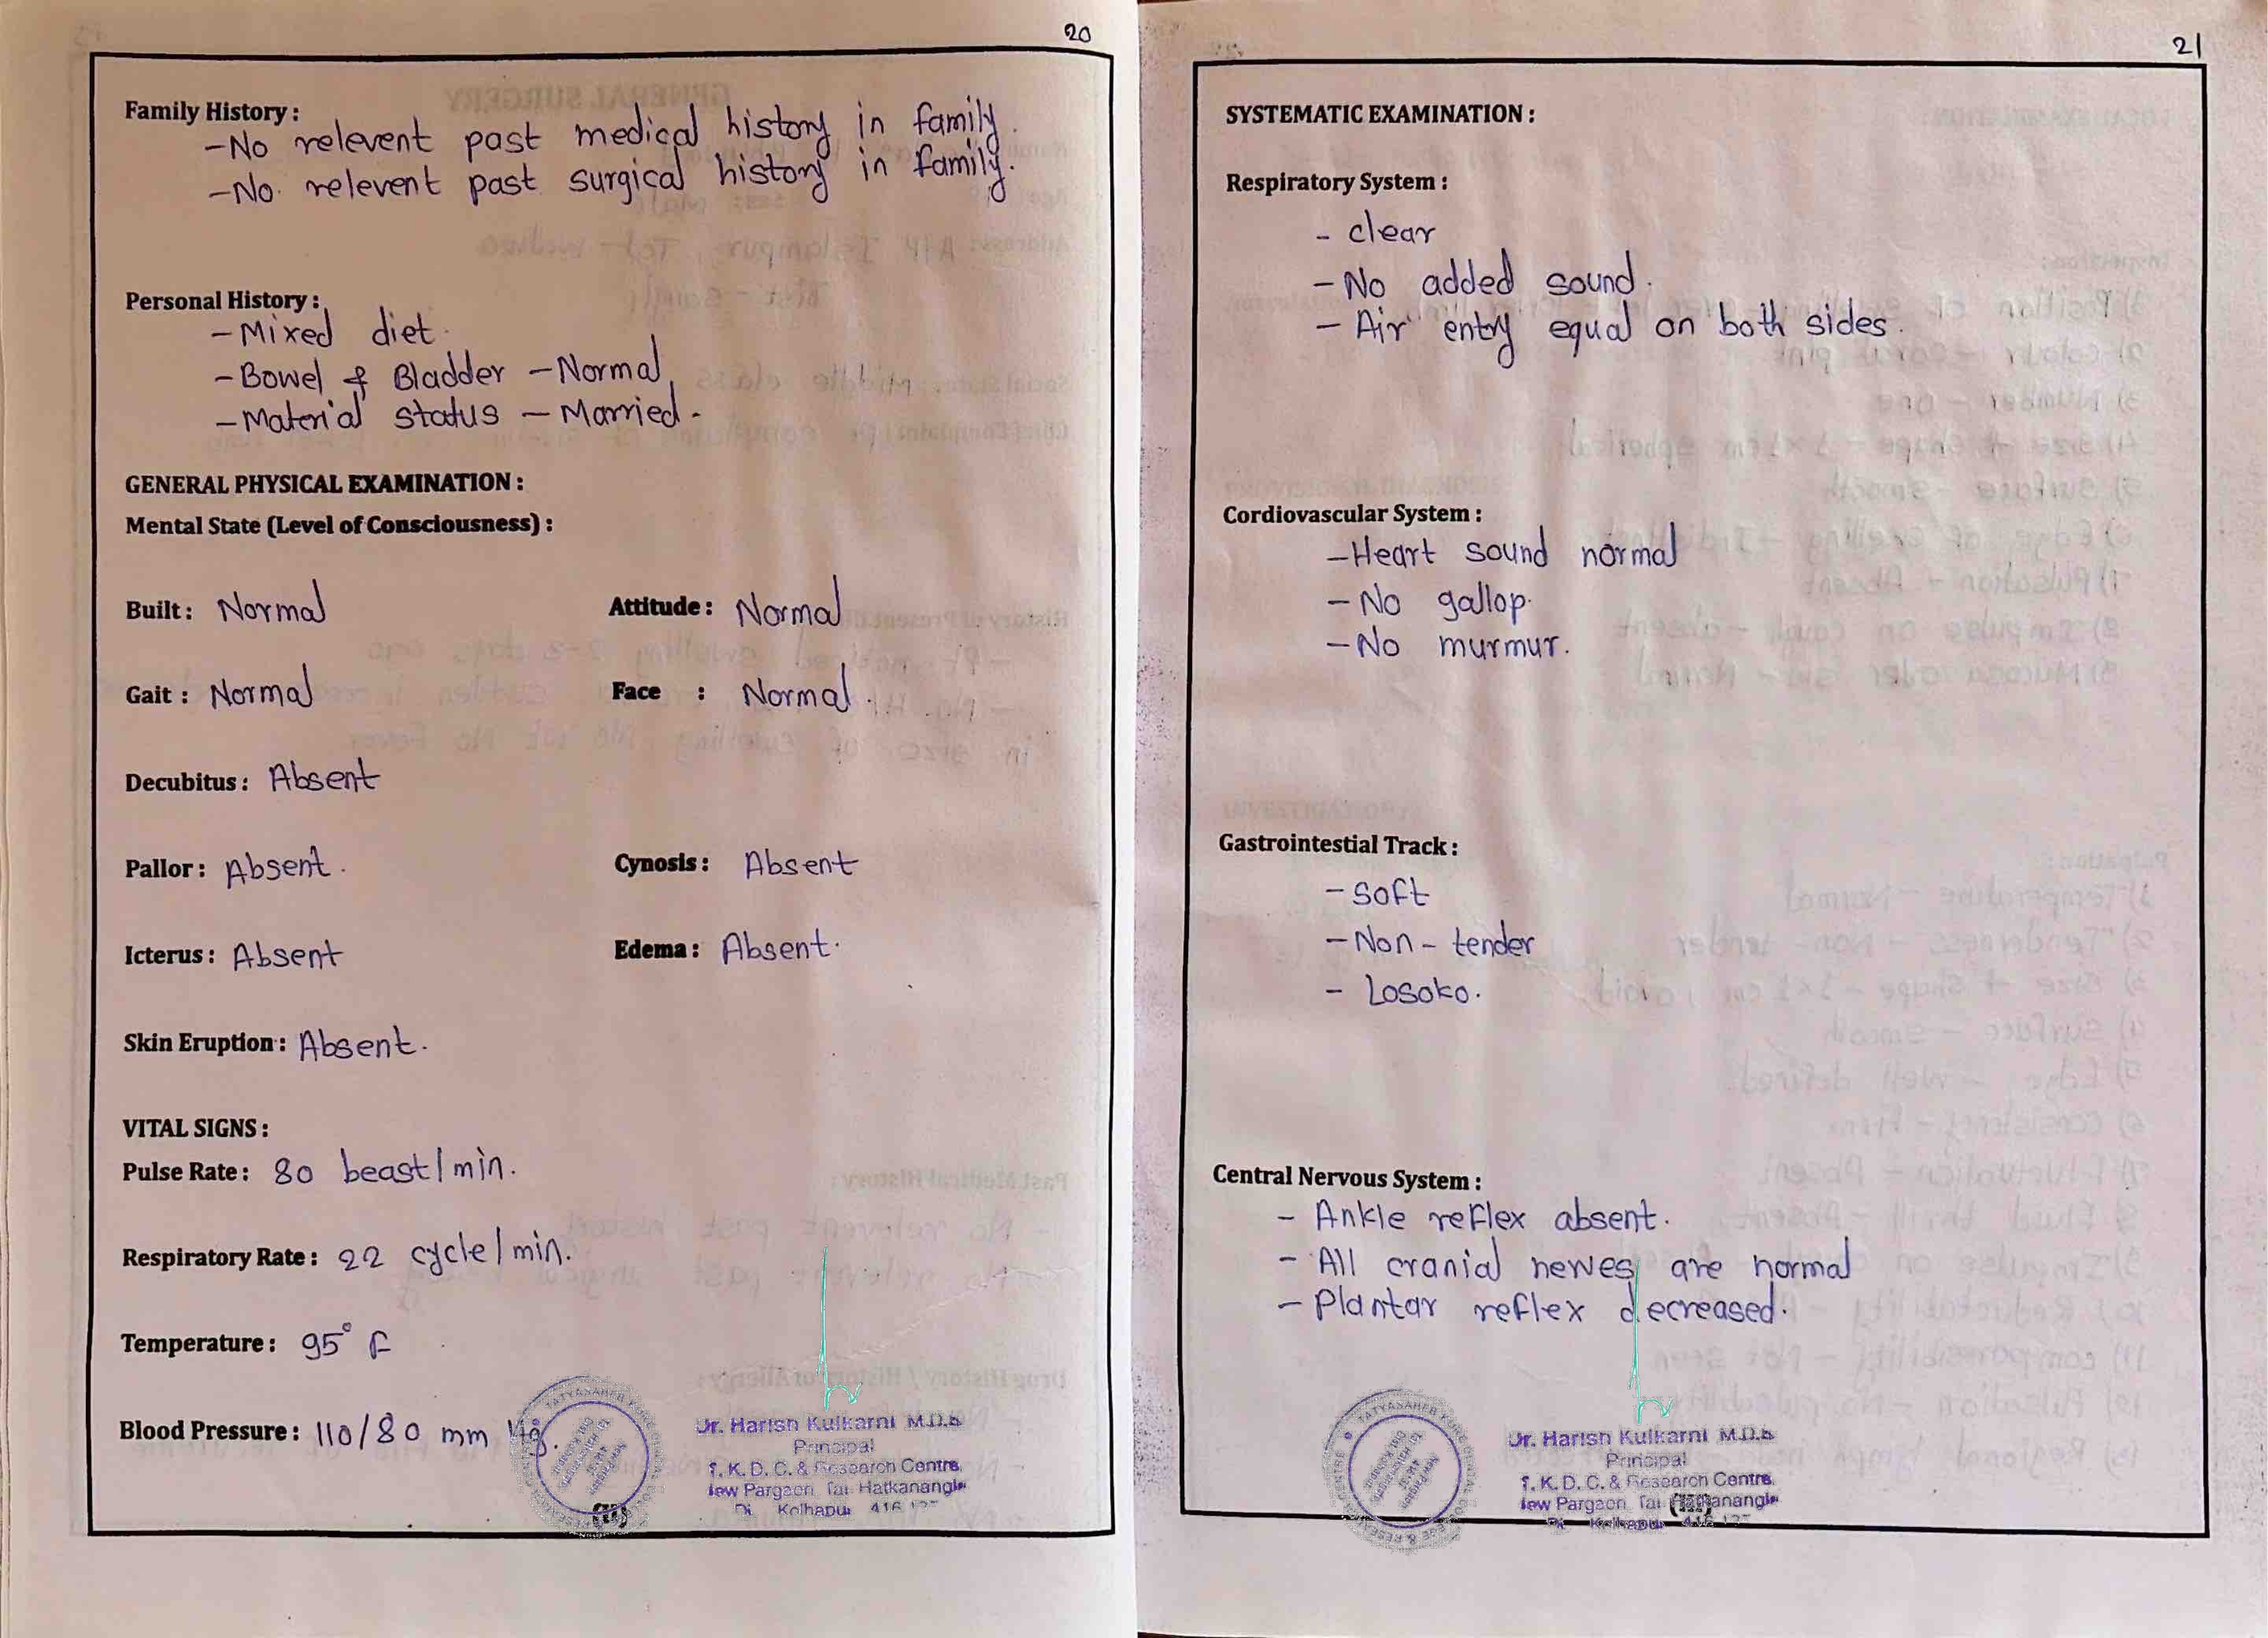 20
Family History :
-No relevent past medical history in family.
-No. relevent past surgical history in family.
Personal History :
-Mixed diet.
-Bowel & Bladder -Normal
-Material status - Married.
GENERAL PHYSICAL EXAMINATION :
Mental State (Level of Consciousness) :
Built : Normal Attitude : Normal
Gait : Normal Face : Normal.
Decubitus : Absent
Pallor : Absent. Cynosis : Absent
Icterus : Absent Edema : Absent.
Skin Eruption : Absent.
VITAL SIGNS :
Pulse Rate : 80 beast/min.
Respiratory Rate : 22 cycle/min.
Temperature : 95° F
Blood Pressure : 110/80 mm Hg.
Dr. Harish Kulkarni M.D.S
Principal
T. K. D. C. & Research Centre
New Pargaon Tal Hatkanangle
Di Kolhapur 416 137
21
SYSTEMATIC EXAMINATION :
Respiratory System :
- clear
-No added sound.
- Air entry equal on both sides.
Cordiovascular System :
-Heart sound normal
-No gallop.
-No murmur.
Gastrointestial Track :
-soft
-Non-tender
- Losoko.
Central Nervous System :
- Ankle reflex absent.
- All cranial nerves are normal
- Plantar reflex decreased.
Dr. Harish Kulkarni M.D.S
Principal
T. K. D. C. & Research Centre
New Pargaon Tal Hatkanangle
Di Kolhapur 416 137